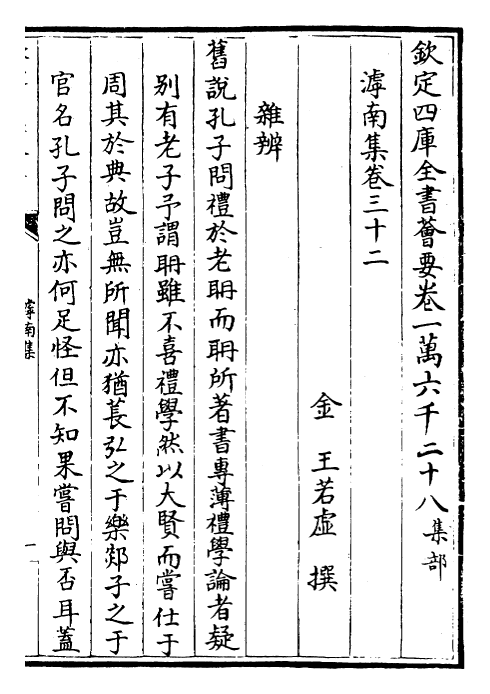 欽定四庫全書薈要卷一萬六千二十八集部
滹南集卷三十二
金 王若虛 撰
雜辨
舊說孔子問禮於老耼而耼所著書專薄禮學論者疑
别有老子予謂耼雖不喜禮學然以大賢而嘗仕于
周其於典故豈無所聞亦猶萇弘之于樂郯子之于
官名孔子問之亦何足怪但不知果嘗問與否耳蓋
滹南集
一